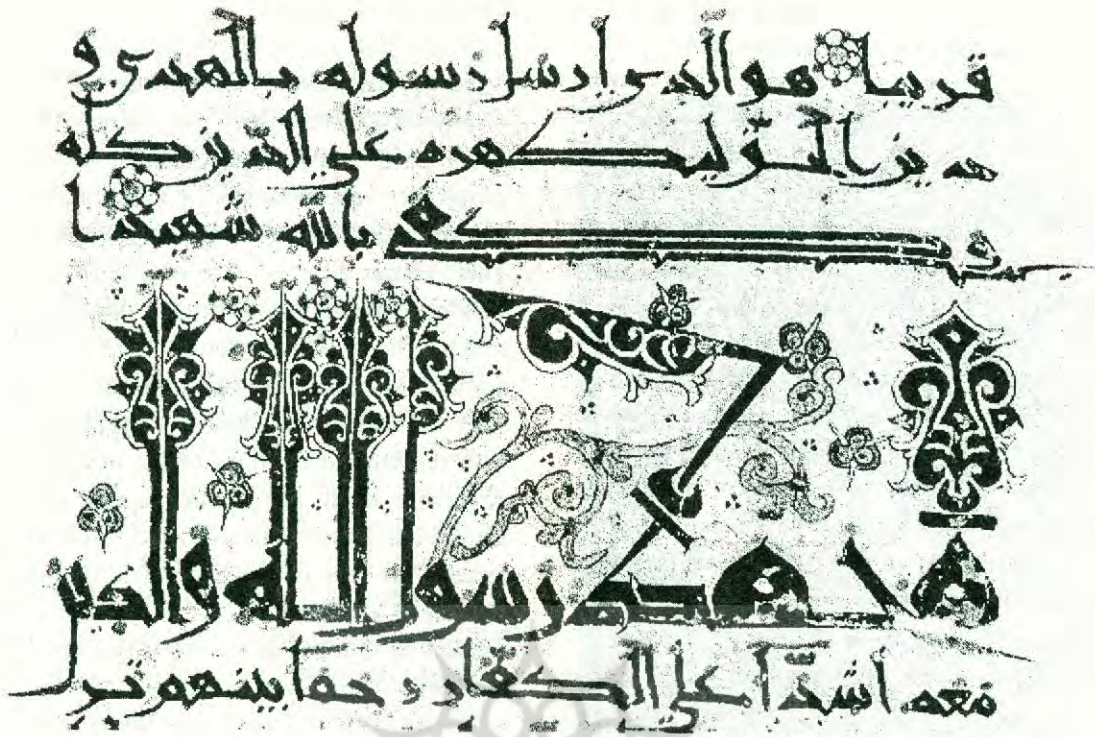 قريبا هو الذي ارسل رسوله بالهدى و
دين الحق ليظهره على الدين كله
وكفى بالله شهيدا
محمد رسول الله والذين
معه اشدّا على الكفار رحما بينهم تر